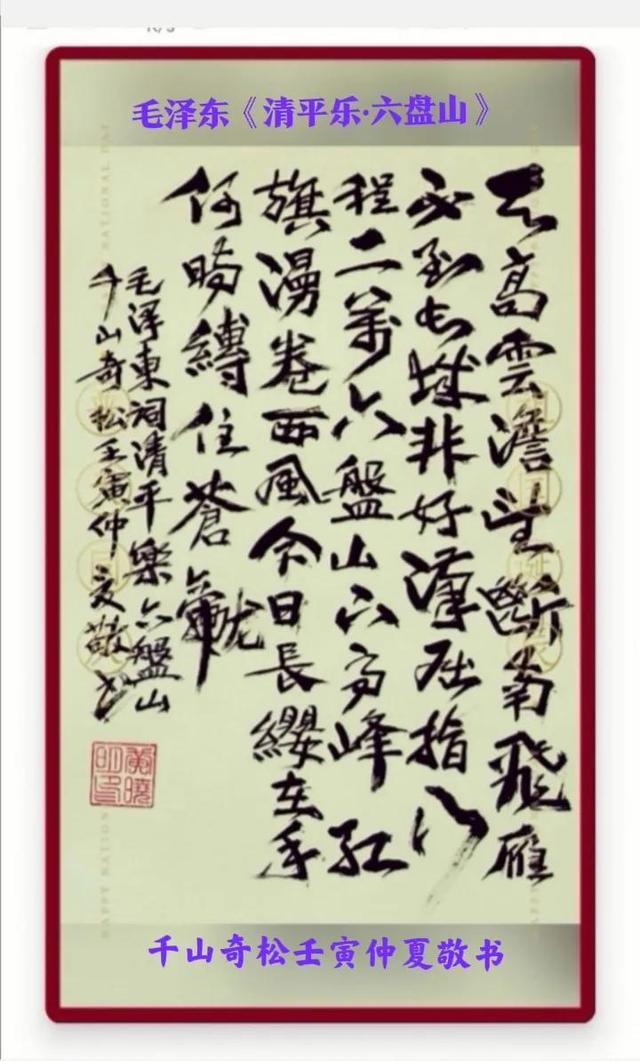 毛泽东《清平乐·六盘山》
天高雲澹望斷南飛雁
不到长城非好漢屈指行
程二萬六盤山上高峰紅
旗漫卷西風今日長纓在手
何時縛住蒼龍
毛澤東詞清平樂六盤山
千山奇松壬寅仲夏敬书
千山奇松壬寅仲夏敬书